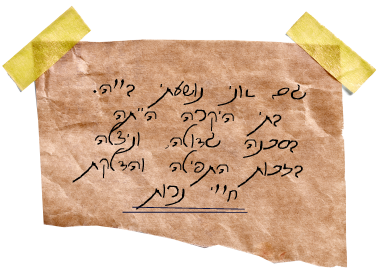 גם אני נושעתי בייה.
בתי היקרה הייתה
בסכנה גדולה, וניצלה
בזכות התפילה והדלקת
ח"י נרות